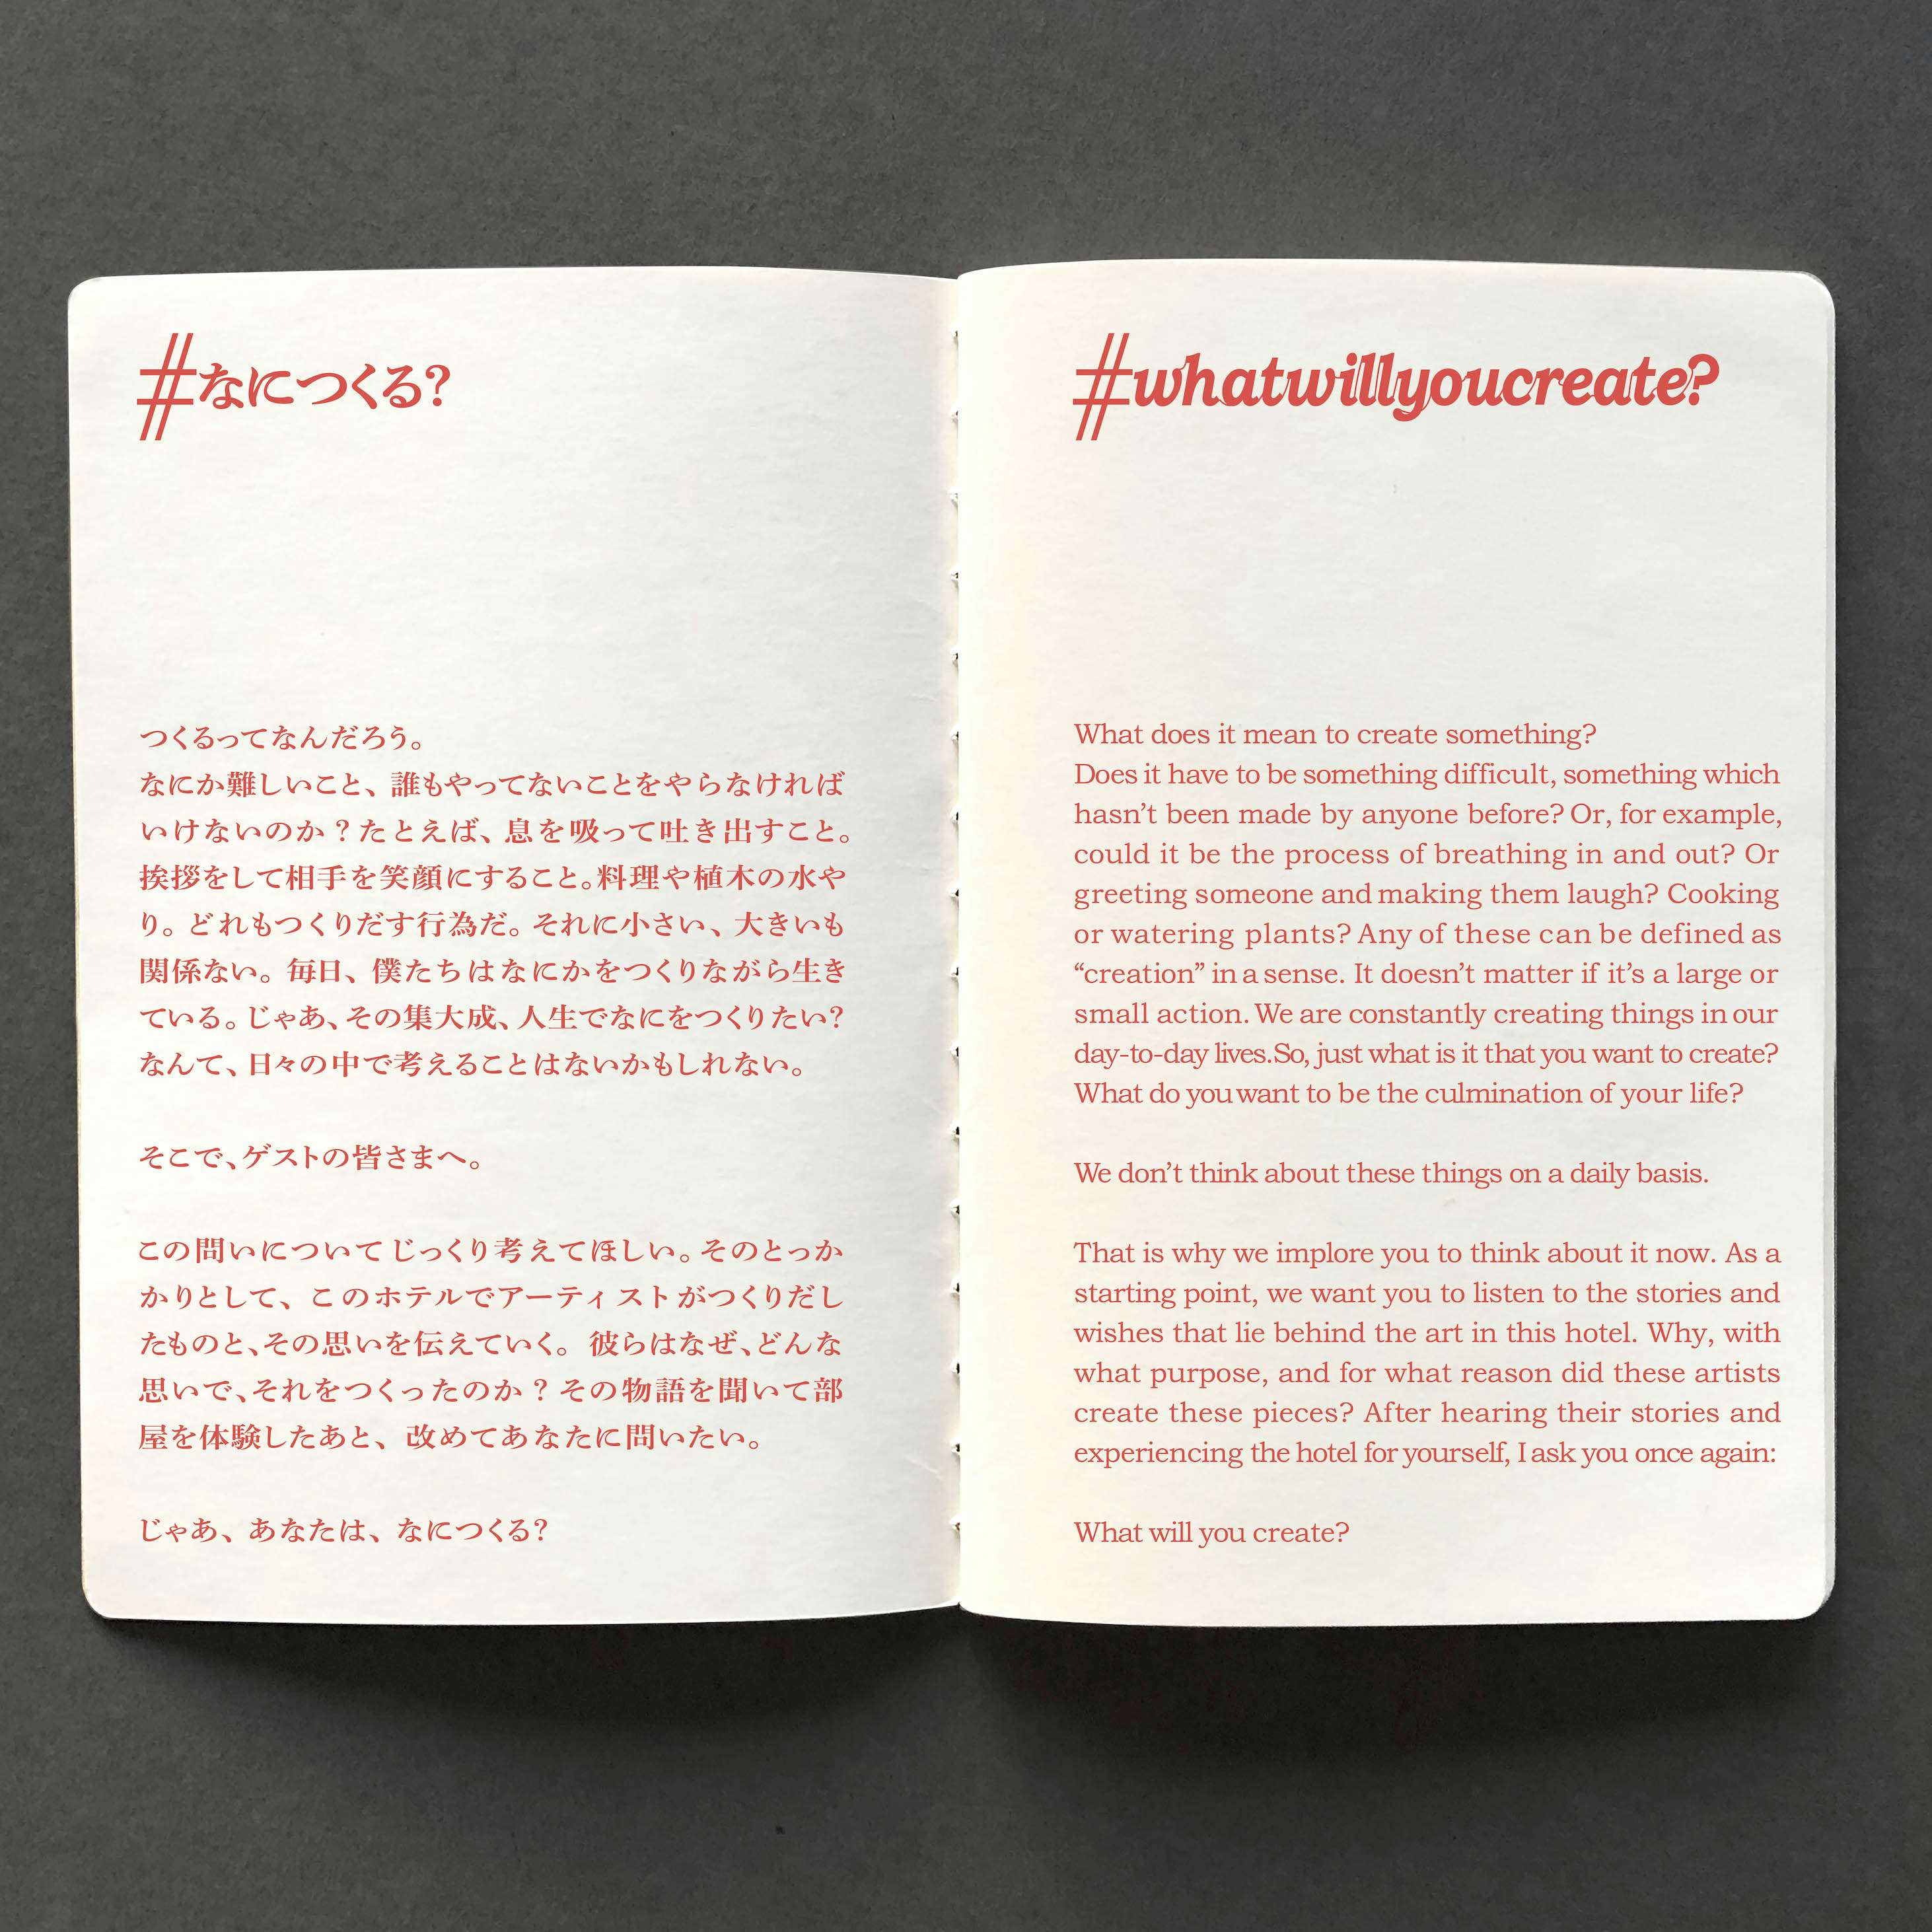 #なにつくる?
つくるってなんだろう。
なにか難しいこと、誰もやってないことをやらなければ
いけないのか?たとえば、息を吸って吐き出すこと。
挨拶をして相手を笑顔にすること。料理や植木の水や
り。どれもつくりだす行為だ。それに小さい、大きいも
関係ない。毎日、僕たちはなにかをつくりながら生き
ている。じゃあ、その集大成、人生でなにをつくりたい?
なんて、日々の中で考えることはないかもしれない。
そこで、ゲストの皆さまへ。
この問いについてじっくり考えてほしい。そのとっか
かりとして、このホテルでアーティストがつくりだし
たものと、その思いを伝えていく。彼らはなぜ、どんな
思いで、それをつくったのか?その物語を聞いて部
屋を体験したあと、改めてあなたに問いたい。
じゃあ、あなたは、なにつくる?
#whatwillyoucreate?
What does it mean to create something?
Does it have to be something difficult, something which
hasn’t been made by anyone before? Or, for example,
could it be the process of breathing in and out? Or
greeting someone and making them laugh? Cooking
or watering plants? Any of these can be defined as
“creation” in a sense. It doesn’t matter if it’s a large or
small action. We are constantly creating things in our
day-to-day lives.So, just what is it that you want to create?
What do you want to be the culmination of your life?
We don’t think about these things on a daily basis.
That is why we implore you to think about it now. As a
starting point, we want you to listen to the stories and
wishes that lie behind the art in this hotel. Why, with
what purpose, and for what reason did these artists
create these pieces? After hearing their stories and
experiencing the hotel for yourself, I ask you once again:
What will you create?